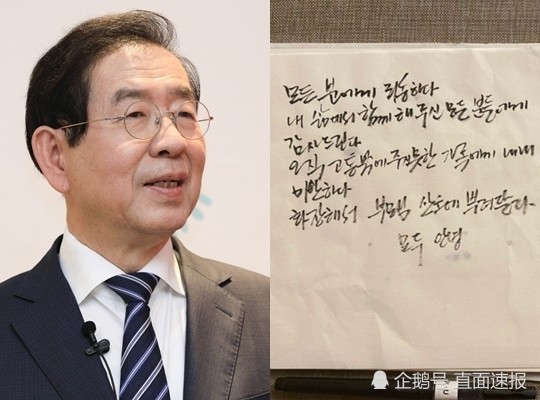 모든 분에게 죄송하다
내 삶에서 함께 해주신 모든 분들에게
감사드린다
오직 고통밖에 주지못한 가족에게 내내
미안하다
화장해서 부모님 산소에 뿌려달라
모두 안녕
企鹅号 直面速报